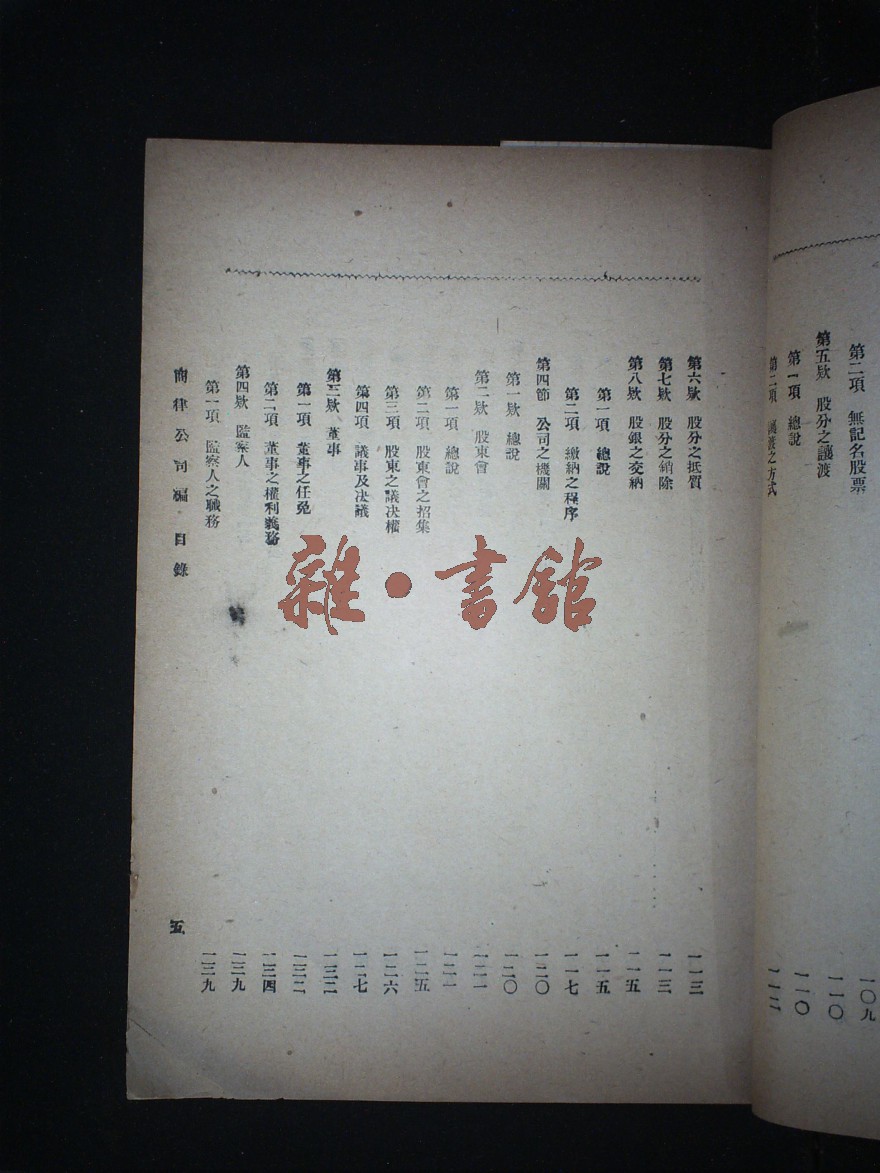 第二項　無記名股票　一〇九
第五欵　股分之讓渡　一一〇
第一項　總說　一一〇
第二項　讓渡之方式　一一二
第六欵　股分之抵質　一一三
第七欵　股分之銷除　一一三
第八欵　股銀之交納　一一五
第一項　總說　一一五
第二項　繳納之程序　一一七
第四節　公司之機關　一二〇
第一欵　總說　一二〇
第二欵　股東會　一二一
第一項　總說　一二一
第二項　股東會之招集　一二五
第三項　股東之議决權　一二六
第四項　議事及决議　一二七
第三欵　董事　一三二
第一項　董事之任免　一三二
第二項　董事之權利義務　一三四
第四欵　監察人　一三九
第一項　監察人之職務　一三九
商律公司編　目錄　五
雜·書館